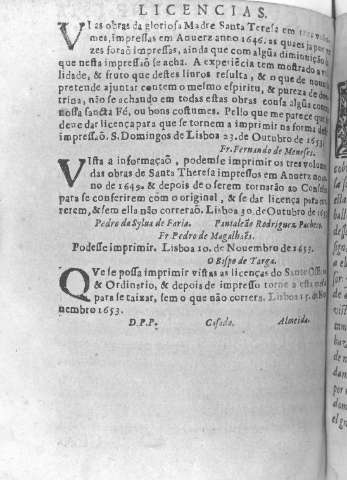 LICENCIAS.
VI as obras da gloriosa Madre Santa Teresa em tres volu-
mes, impressas em Anuerz anno 1646. as quaes ja por ve-
zes foraõ impressas, ainda que com algũa diminuiçaõ do
que nesta impressaõ se acha. A experiẽcia tem mostrado a vti-
lidade, & fruto que destes liuros resulta, & o que de nouo se
pretende ajuntar contem o mesmo espiritu, & pureza de dou-
trina, não se achando em todas estas obras consa algũa contra
nossa sancta Fé, ou bons costumes. Pello que me parece que se
deue dar licença para que se tornem a imprimir na forma desta
impressaõ. S. Domingos de Lisboa 23. de Outubro de 1653.
Fr. Fernando de Meneses.
VIsta a informaçaõ, podemse imprimir os tres volumes
das obras de Santa Theresa impressos em Anuerz no an-
no de 1649. & depois de serem tornaráõ ao Conselho
para se conferirem com o original, & se dar licença para cor-
rerem, & sem ella não correraõ. Lisboa 30. de Outubro de 1653
Pedro da Sylua de Faria. Pantaleão Rodriguez Pacheco.
Fr. Pedro de Magalhães.
Podesse imprimir. Lisboa 10. de Nouembro de 1653.
O Bispo de Targa.
QVe se possa imprimir vistas as licenças do Santo Officio,
& Ordinario, & depois de impresso torne a esta mesa
para se taixar, sem o que não correra. Lisboa 15. de No-
uembro 1653.
D.P.P. Casada. Almeida.